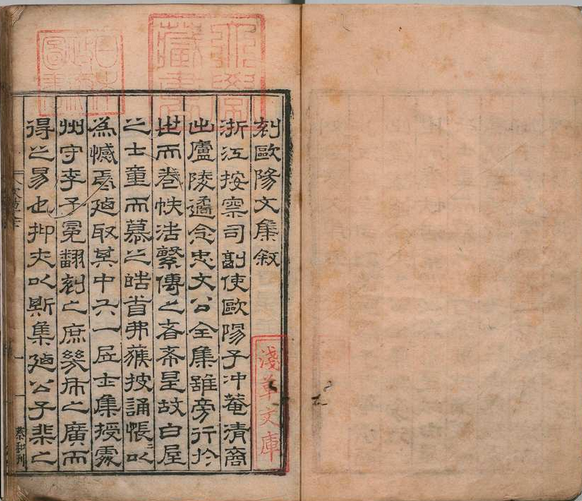 刻歐陽文集叙
浙江按察司副使歐陽子冲菴清裔
廬陵遹念忠文公全集雖旁行於
世而卷帙浩繁傳之者希是故白屋
之士童而慕之皓首弗獲披誦悵以
為憾焉廼取其中六一居士集授
州守李子冕翻刻之庶幾市之廣而
得之易也抑夫以斯集廼公子棐之
淺草文庫